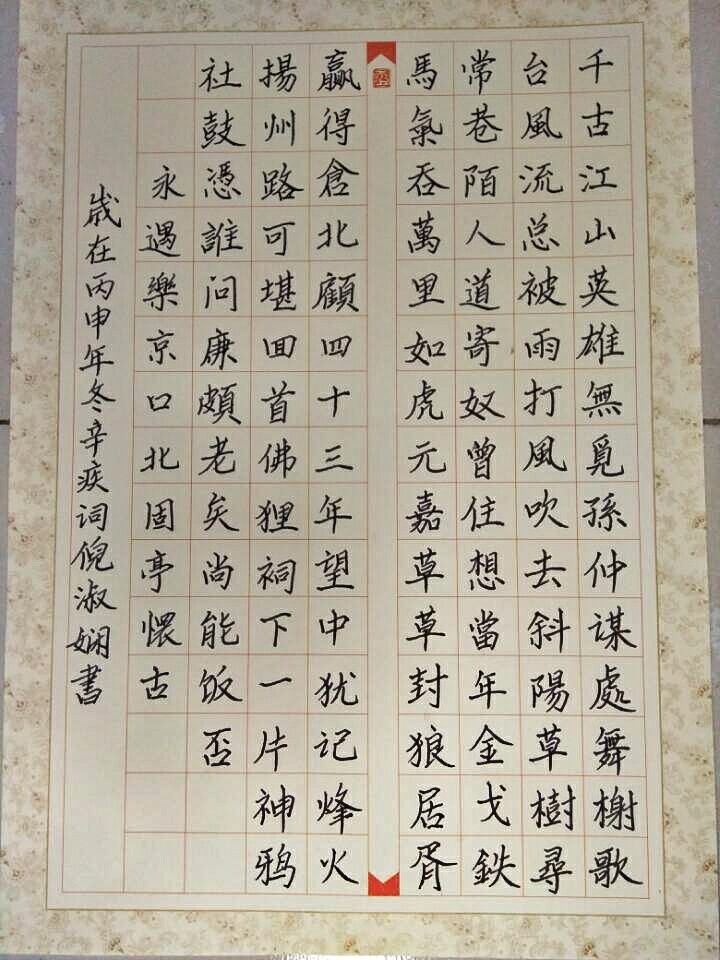 千古江山英雄無覓孫仲謀處舞榭歌
台風流总被雨打風吹去斜陽草樹尋
常巷陌人道寄奴曾住想當年金戈鉄
馬氣吞萬里如虎元嘉草草封狼居胥
赢得倉北顧四十三年望中犹记烽火
揚州路可堪囬首佛狸祠下一片神鴉
社鼓憑誰问廉頗老矣尚能饭否
永遇樂京口北固亭懷古
歲在丙申年冬辛疾词倪淑娴書